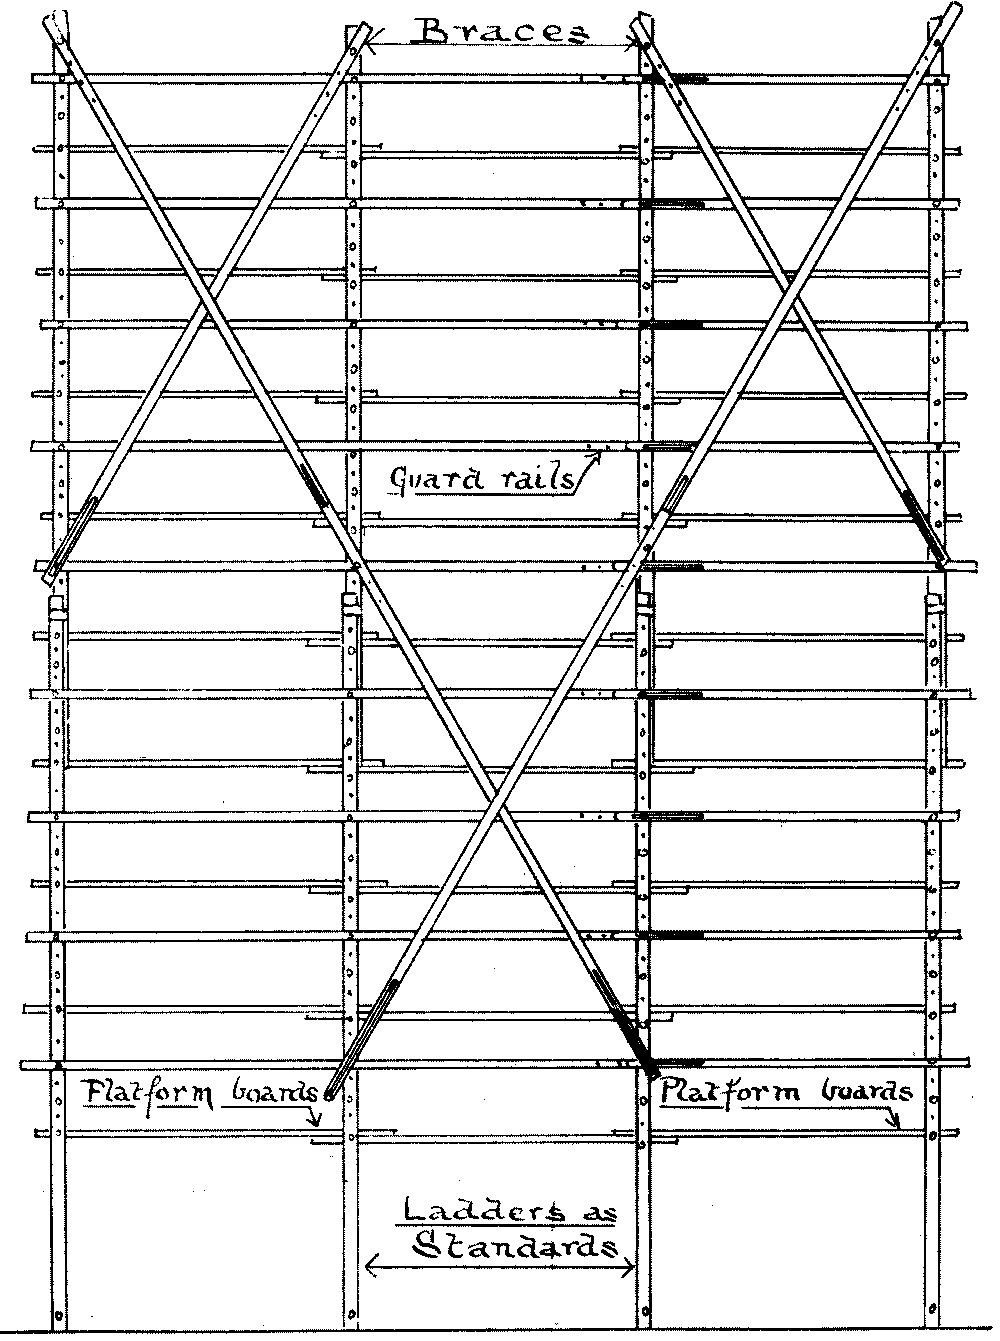 Braces
Guard rails
Platform boards
Platform boards
Ladders as
Standards